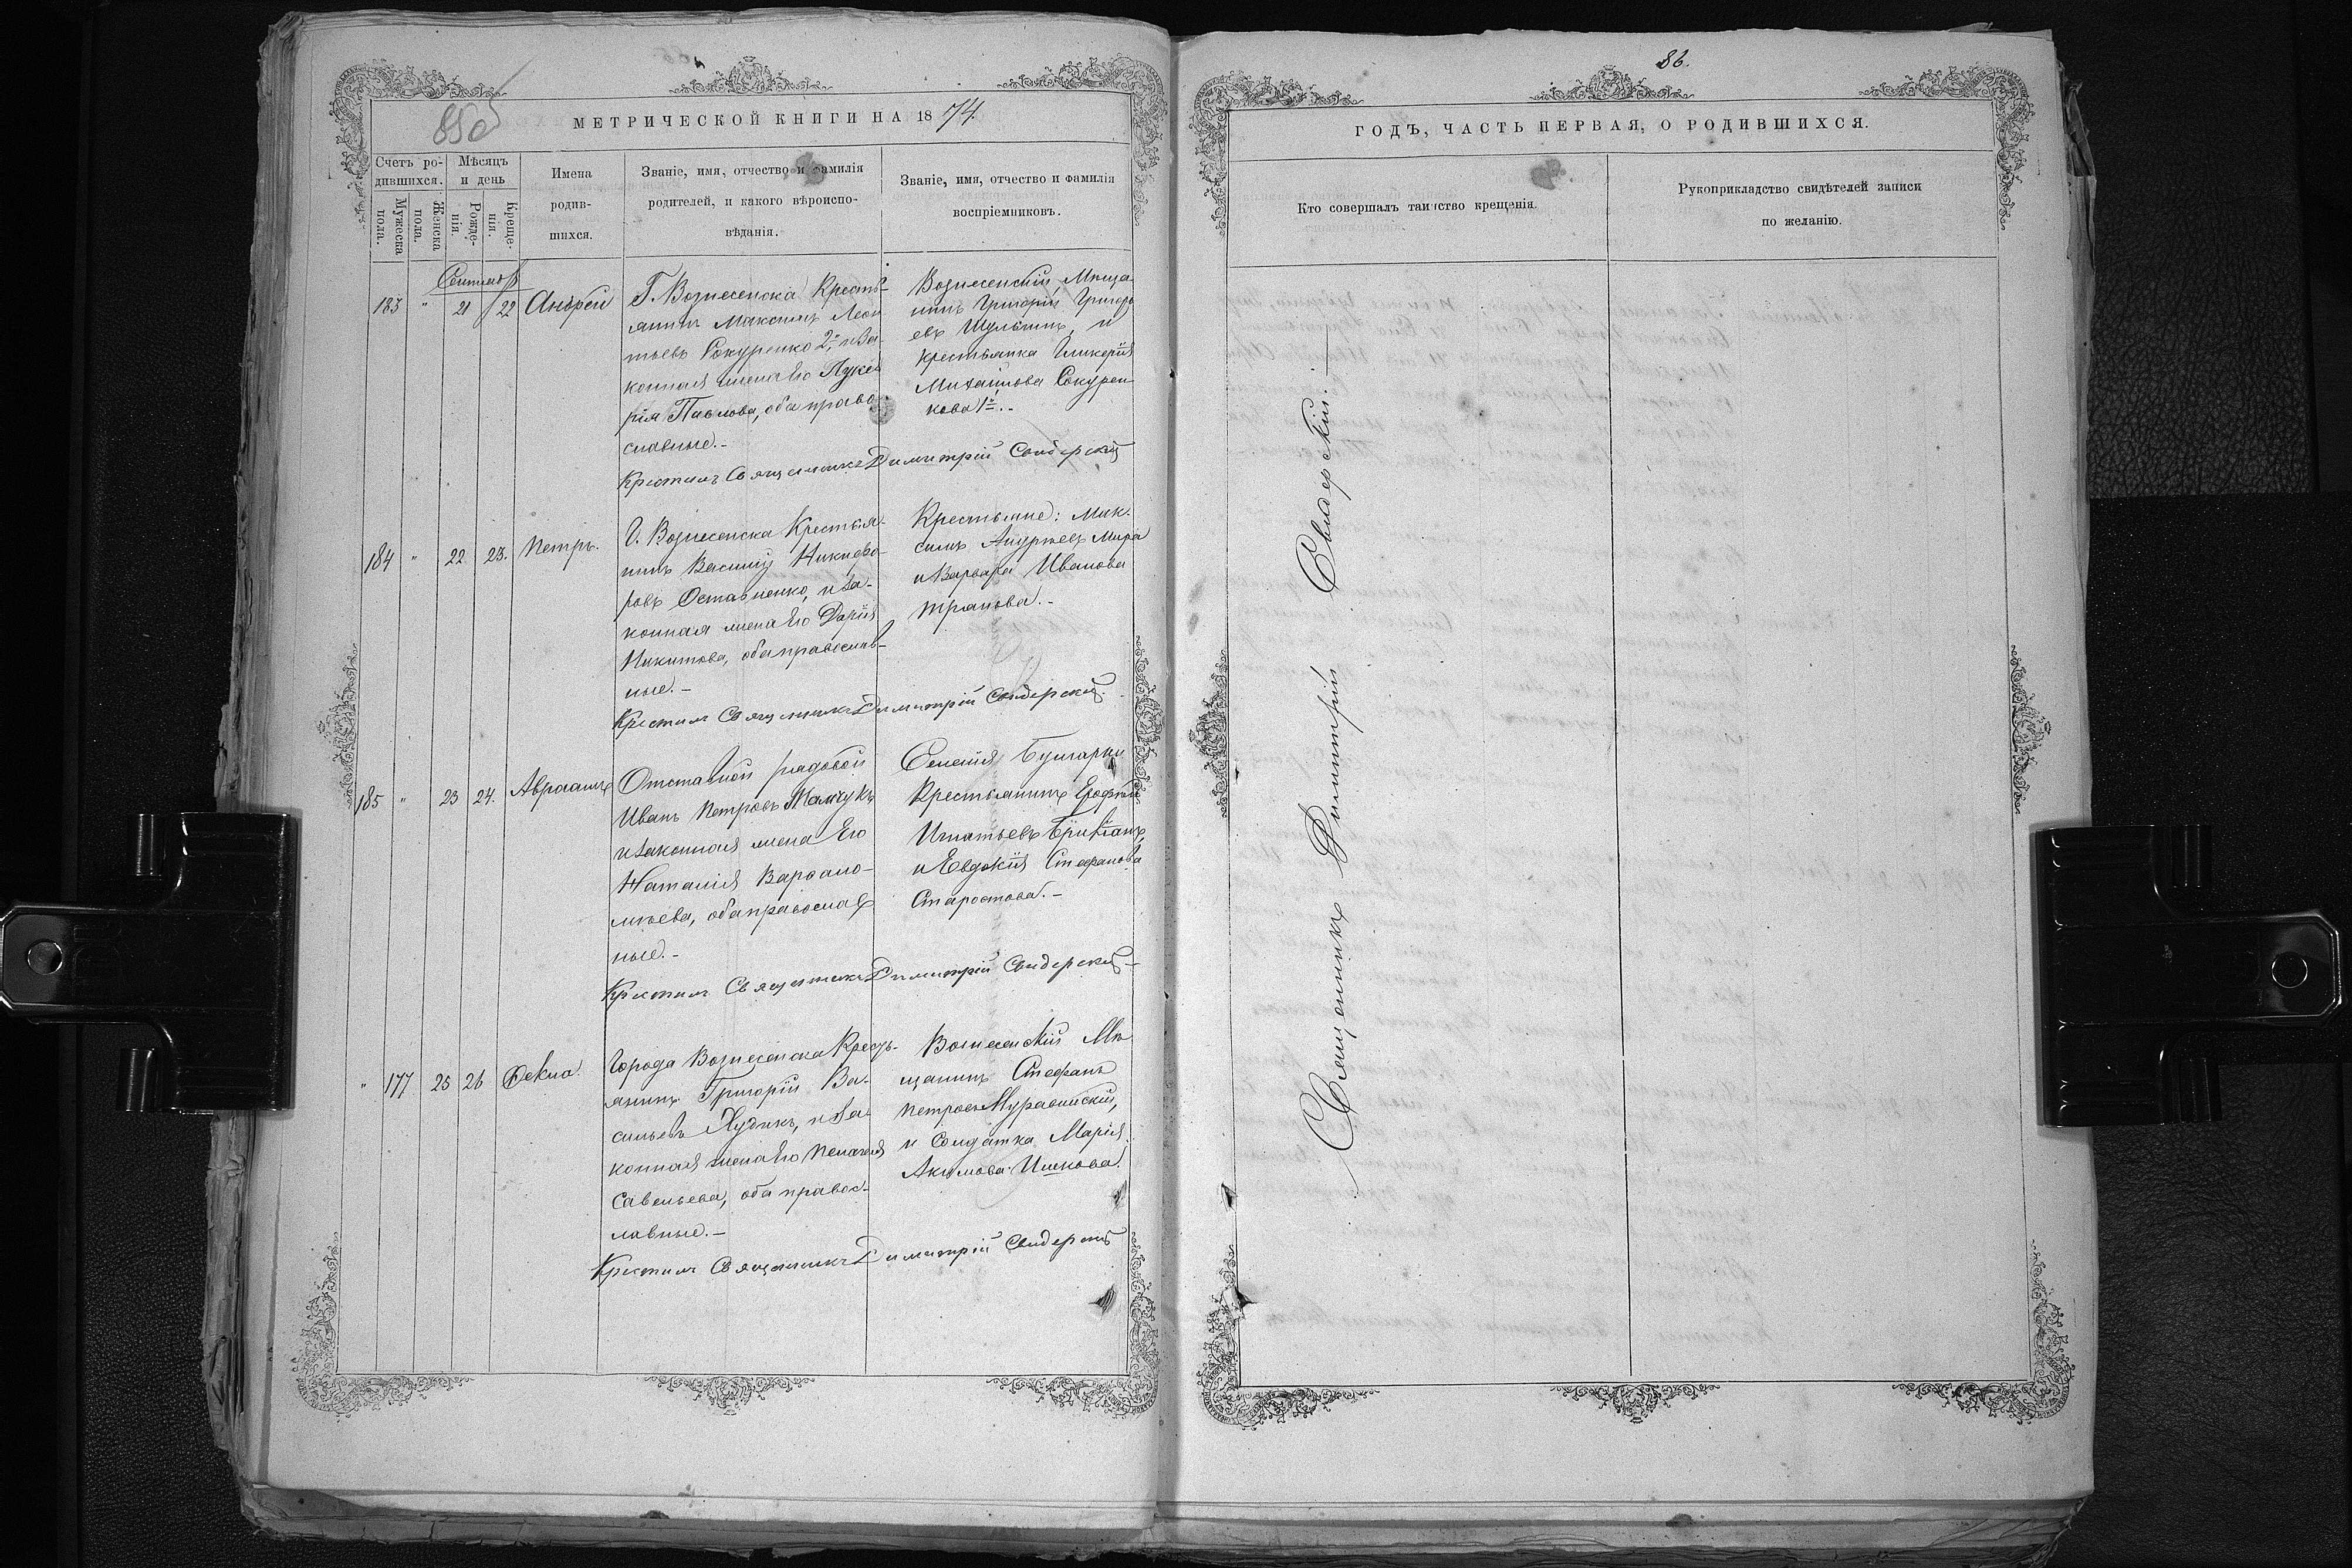 85об
МЕТРИЧЕСКОЙ КНИГИ НА 1874
Счетъ ро-
дившихся.
Мужеска
пола.
Женска
пола.
Мѣсяцъ
и день
Рожде-
нія.
Креще-
нія.
Имена
родив-
шихся.
Званіе, имя, отчество и фамилія
родителей, и какого вѣроиспо-
вѣданія.
Званіе, имя, отчество и фамилія
воспріемниковъ.
183 " 21 22 Андрей
Г. Вознесенска Кресть-
янинъ Максимъ Леон
тьевъ Сокуренко 2й, и за-
конная жена его Луке
рія Павлова, оба право
славные.-
Вознесенскій Мѣща
нинъ Григорій Григорь
евъ Шульгинъ, и
крестьянка Гликерія
Михайлова Сокурен
кова 1я.-
Крестилъ Священникъ Димитрій Свидерскій
184 " 22 23. Петръ.
Г. Вознесенска Крестья-
нинъ Василій Никифо-
ровъ Остапенко, и за-
конная жена его Дарія
Никитова, оба православ-
ные.-
Крестьяне: Мак-
симъ Андреевъ Мира
и Варвара Иванова
Крестилъ Священникъ Димитрій Свидерскій.
185 " 23 24. Авраамъ
Отставной рядовой
Иванъ Петровъ Мамчукъ
и законная жена его
Наталія Варфоло-
мѣева, оба православ
ные.-
Селенія Булгарки
Крестьянинъ Ерофей
Игнатьевъ
и Евдокія Стефанова
Старостова.-
Крестилъ Священникъ Димитрій Свидерскій-
" 177 25 26 Фекла.
Города Вознесенска Кресть-
янинъ Григорій Ва-
сильевъ Худикъ, и за
конная жена его Пелагея
Савельева, оба правос-
лавные.-
Вознесенскій Мѣ
щанинъ Стефанъ
Петровъ Муравинскій,
и Солдатка Марія
Акимова Ишкова.
Крестилъ Священникъ Димитрій Свидерскій
86.
ГОДЪ, ЧАСТЬ ПЕРВАЯ, О РОДИВШИХСЯ.
Кто совершалъ таинство крещенія.
Рукоприкладство свидѣтелей записи
по желанію.
Священникъ Димитрій Свидерскій.